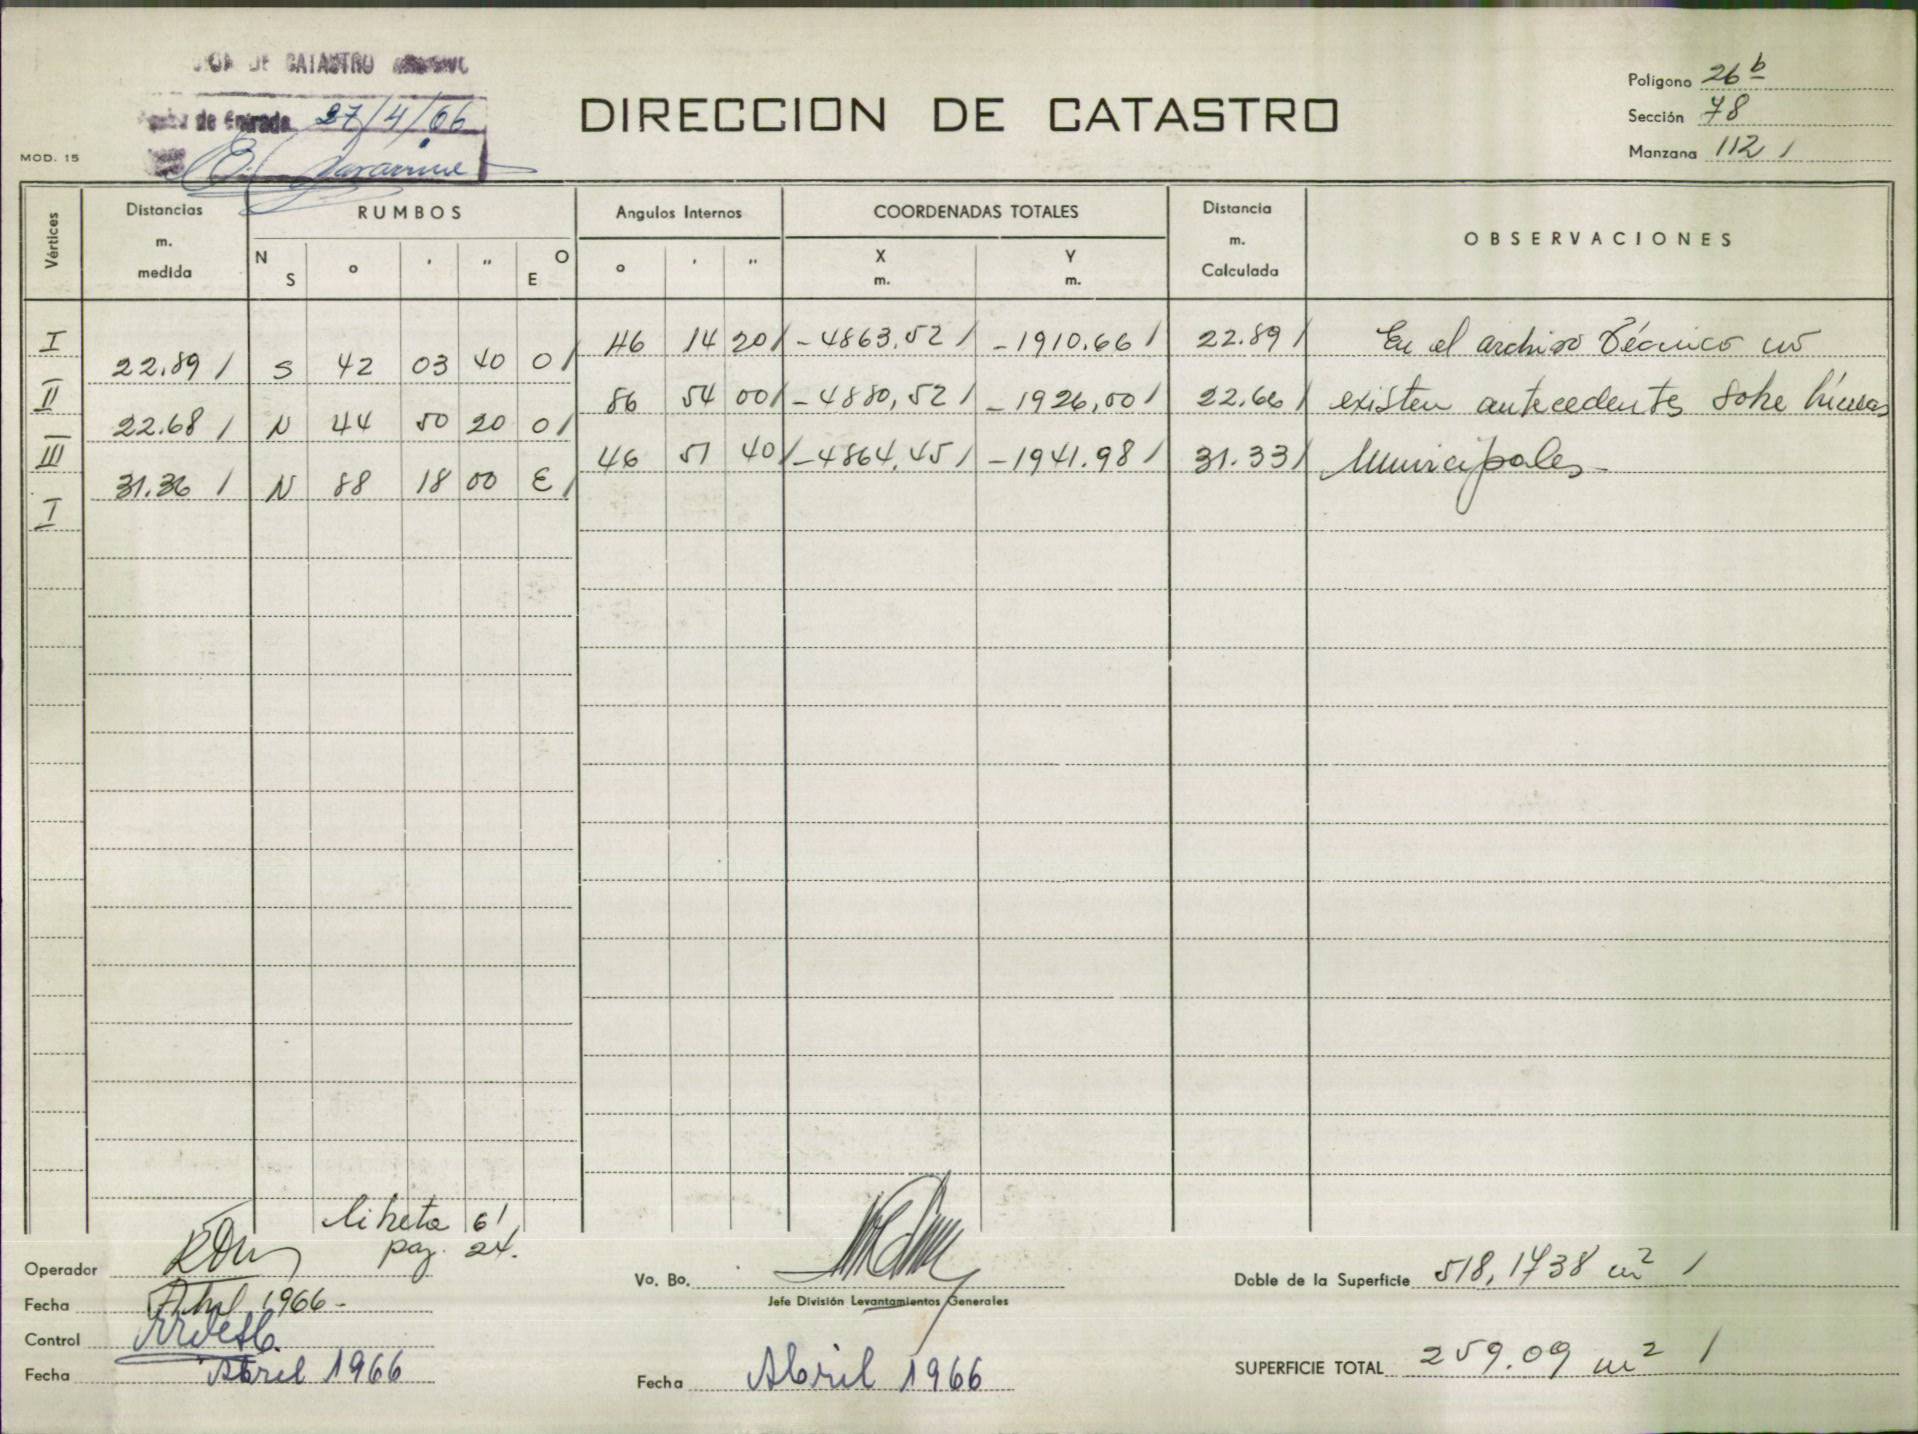 DE CATASTRO
de Entrada 27/4/66
DIRECCION DE CATASTRO
Polígono 26 b
Sección 78
Manzana 112 /
MOD. 15
Vértices
Distancias m. medida
RUMBOS
N S ° ' " O E
Angulos Internos
° ' "
COORDENADAS TOTALES
X m. Y m.
Distancia m. Calculada
OBSERVACIONES
I 46 14 20/ -4863,52 / -1910.66 / 22.89 / En el archivo Técnico no
22.89 / S 42 03 40 O/
II 86 54 00/ -4880,52 / -1926,00 / 22.66 / existen antecedentes sobre líneas
22.68 / N 44 50 20 O/
III 46 51 40/ -4864,45 / -1941.98 / 31.33 / Municipales
31.36 / N 88 18 00 E/
I
libreta 61
pag. 24.
Operador
Fecha Abril 1966-
Control
Fecha Abril 1966
Vo. Bo.
Jefe División Levantamientos Generales
Fecha Abril 1966
Doble de la Superficie 518,1738 m² /
SUPERFICIE TOTAL 259.09 m² /